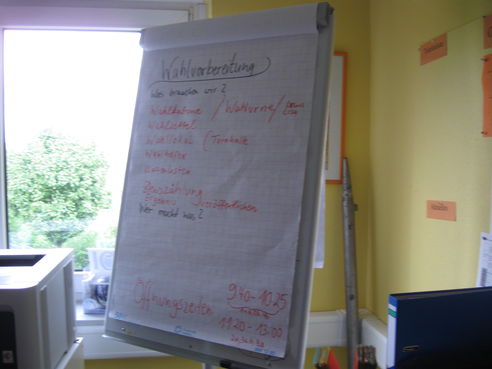 Wahlvorbereitung
Was brauchen wir?
Wahlkabine / Wahlurne /
Wahlzettel
Wahllokal (Turnhalle
Wahlhelfer
Auszählung
Ergebnis veröffentlichen
Wer macht was?
Öffnungszeiten
9.40-10.25
11.20-13.00